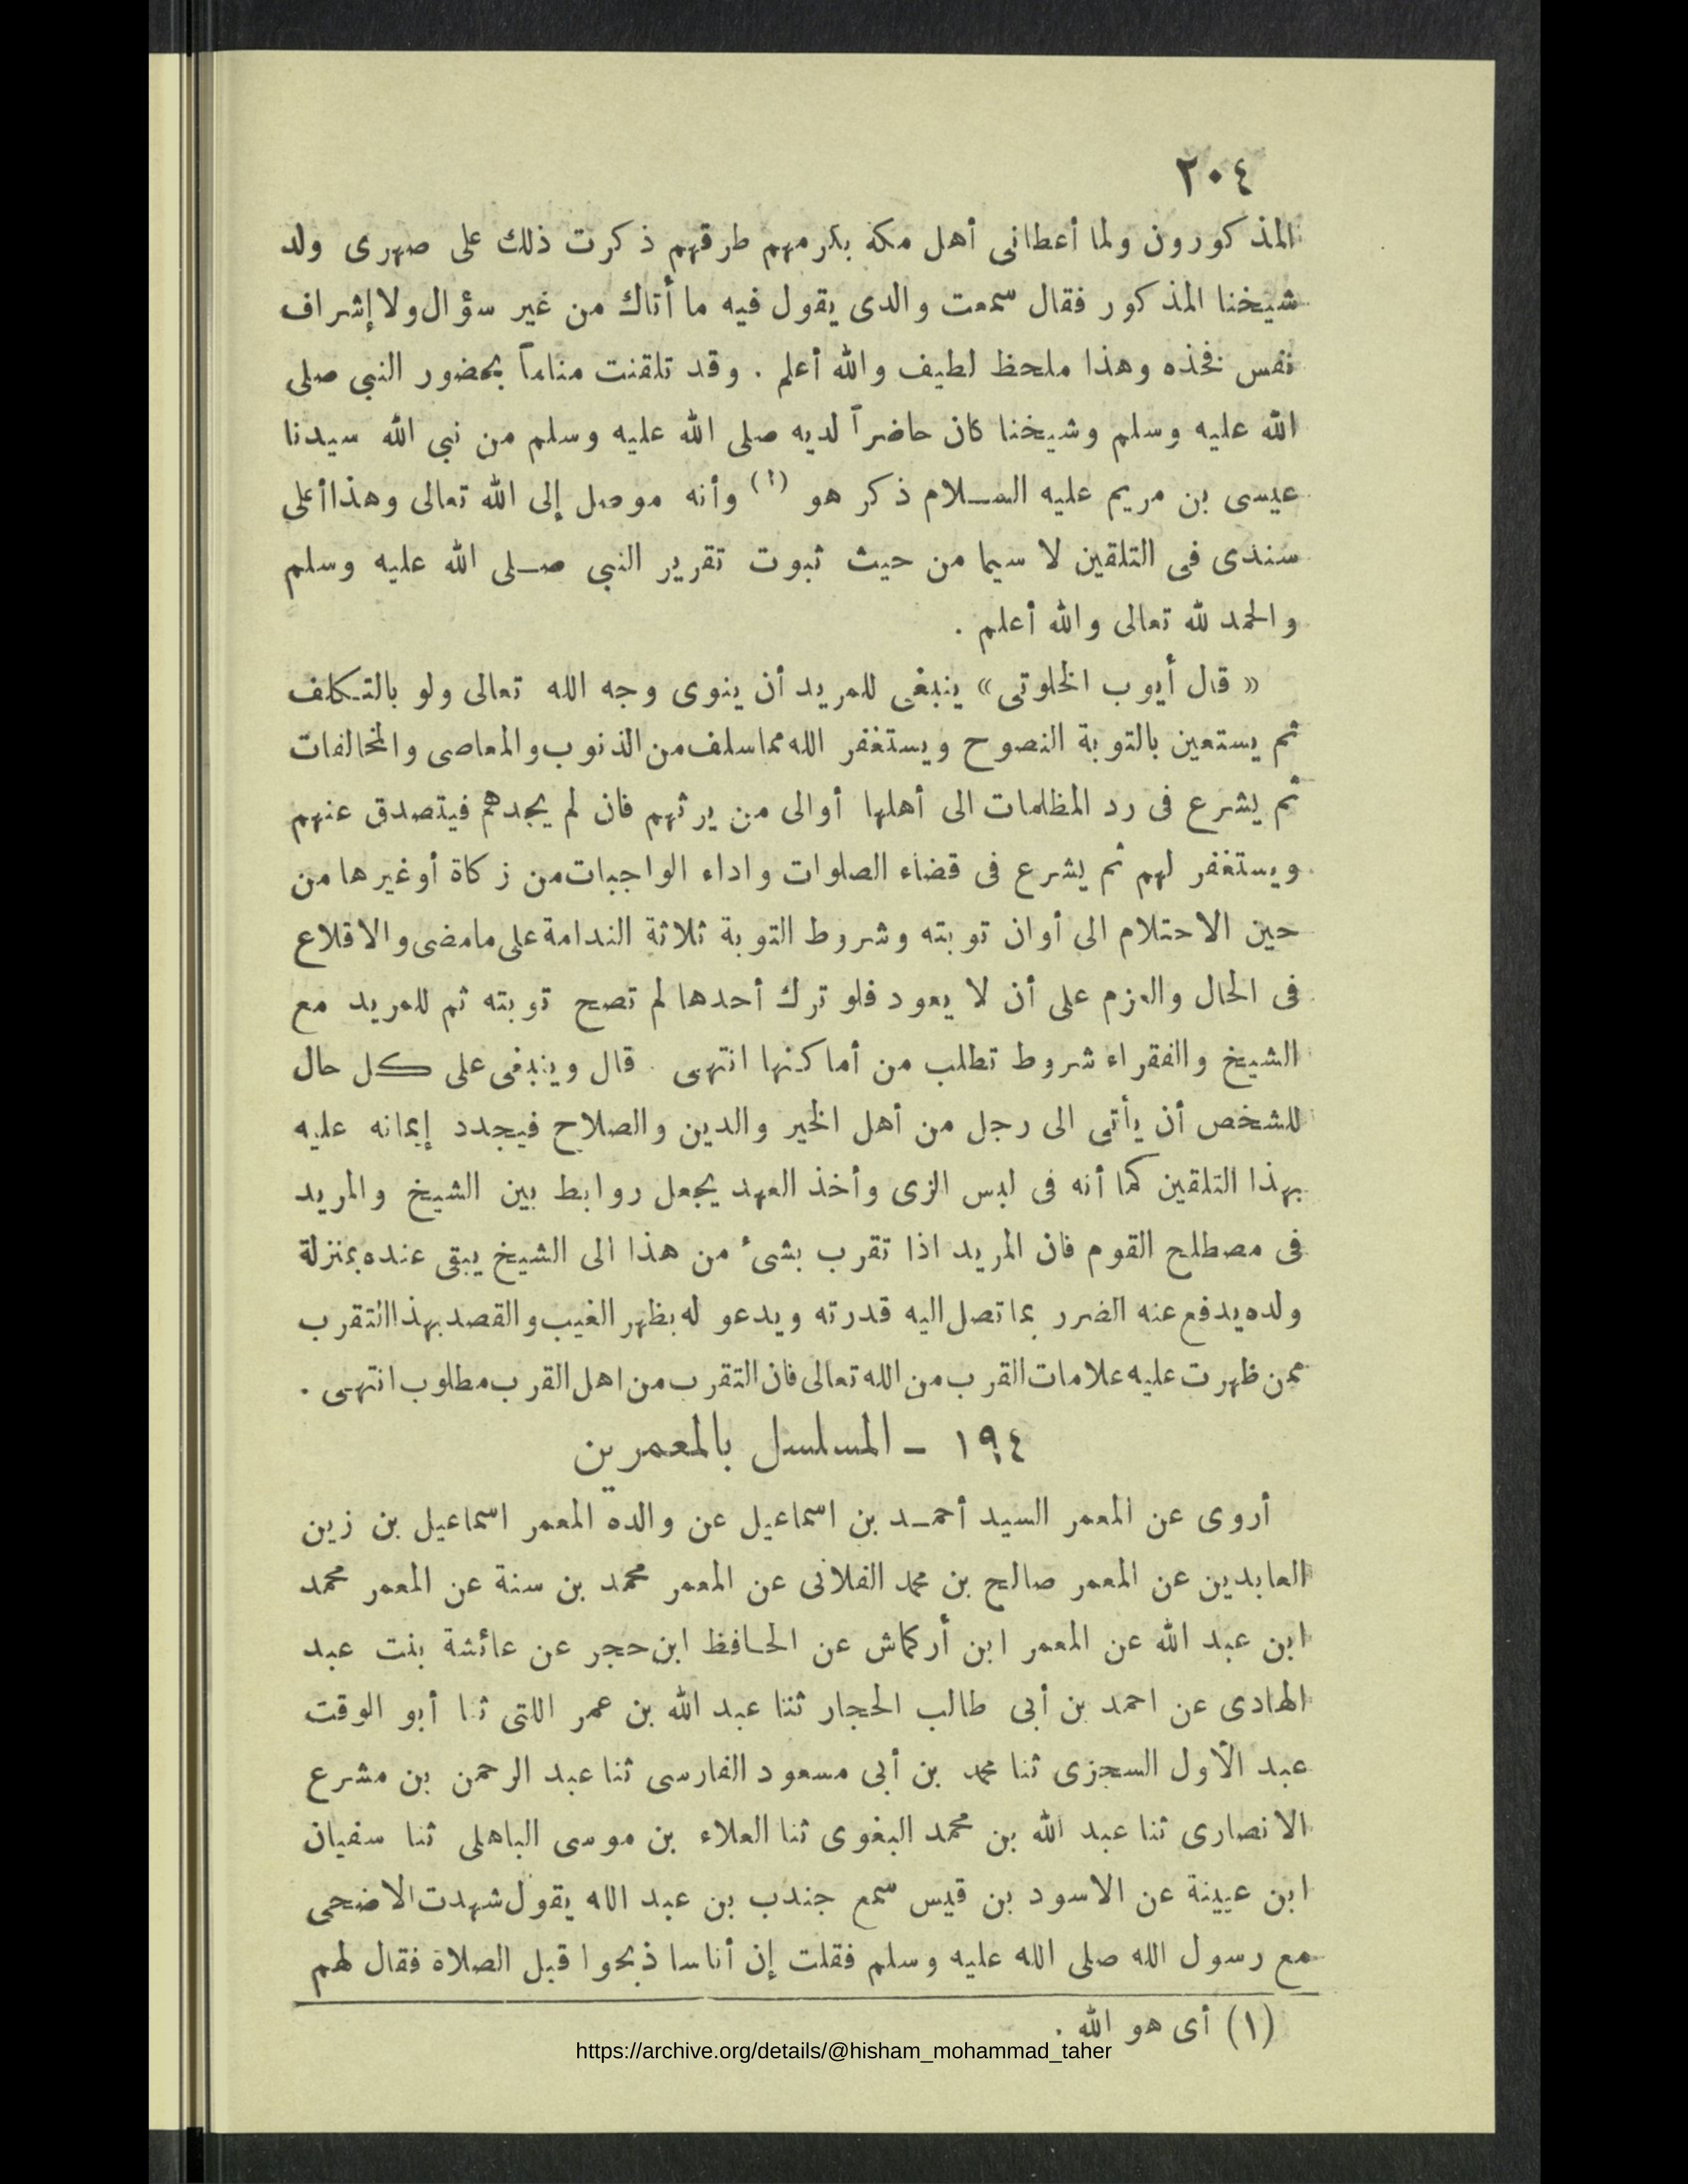 ٢٠٤
المذكورون ولما أعطانى أهل مكة بكرمهم طرقهم ذكرت ذلك على صهرى ولد
شيخنا المذكور فقال سمعت والدى يقول فيه ما أتاك من غير سؤال ولا إشراف
نفس فخذه وهذا ملحظ لطيف والله أعلم . وقد تلقنت مناماً بحضور النبي صلى
الله عليه وسلم وشيخنا كان حاضراً لديه صلى الله عليه وسلم من نبي الله سيدنا
عيسى بن مريم عليه السلام ذكر هو (١) وأنه موصل إلى الله تعالى وهذا أعلى
سندى فى التلقين لا سيما من حيث ثبوت تقرير النبي صلى الله عليه وسلم
والحمد لله تعالى والله أعلم .
« قال أيوب الخلوتى » ينبغى للمريد أن ينوى وجه الله تعالى ولو بالتكلف
ثم يستعين بالتوبة النصوح ويستغفر الله مما سلف من الذنوب والمعاصى والمخالفات
ثم يشرع فى رد المظلمات الى أهلها أوالى من يرثهم فان لم يجدهم فيتصدق عنهم
ويستغفر لهم ثم يشرع فى قضاء الصلوات واداء الواجبات من زكاة أوغيرها من
حين الاحتلام الى أوان توبته وشروط التوبة ثلاثة الندامة على مامضى والاقلاع
فى الحال والعزم على أن لا يعود فلو ترك أحدها لم تصح توبته ثم للمريد مع
الشيخ والفقراء شروط تطلب من أماكنها انتهى . قال وينبغى على كل حال
للشخص أن يأتى الى رجل من أهل الخير والدين والصلاح فيجدد إيمانه عليه
بهذا التلقين كما أنه فى لبس الزى وأخذ العهد يجعل روابط بين الشيخ والمريد
فى مصطلح القوم فان المريد اذا تقرب بشئ من هذا الى الشيخ يبقى عنده بمنزلة
ولده يدفع عنه الضرر بما تصل اليه قدرته ويدعو له بظهر الغيب والقصد بهذا التقرب
ممن ظهرت عليه علامات القرب من الله تعالى فان التقرب من اهل القرب مطلوب انتهى .
١٩٤ - المسلسل بالمعمرين
أروى عن المعمر السيد أحمد بن اسماعيل عن والده المعمر اسماعيل بن زين
العابدين عن المعمر صالح بن محمد الفلانى عن المعمر محمد بن سنة عن المعمر محمد
ابن عبد الله عن المعمر ابن أركماش عن الحافظ ابن حجر عن عائشة بنت عبد
الهادى عن احمد بن أبى طالب الحجار ثنا عبد الله بن عمر اللتى ثنا أبو الوقت
عبد الأول السجزى ثنا محمد بن أبى مسعود الفارسى ثنا عبد الرحمن بن مشرع
الانصارى ثنا عبد الله بن محمد البغوى ثنا العلاء بن موسى الباهلى ثنا سفيان
ابن عيينة عن الاسود بن قيس سمع جندب بن عبد الله يقول شهدت الاضحى
مع رسول الله صلى الله عليه وسلم فقلت إن أناسا ذبحوا قبل الصلاة فقال لهم
(١) أى هو الله .
https://archive.org/details/@hisham_mohammad_taher